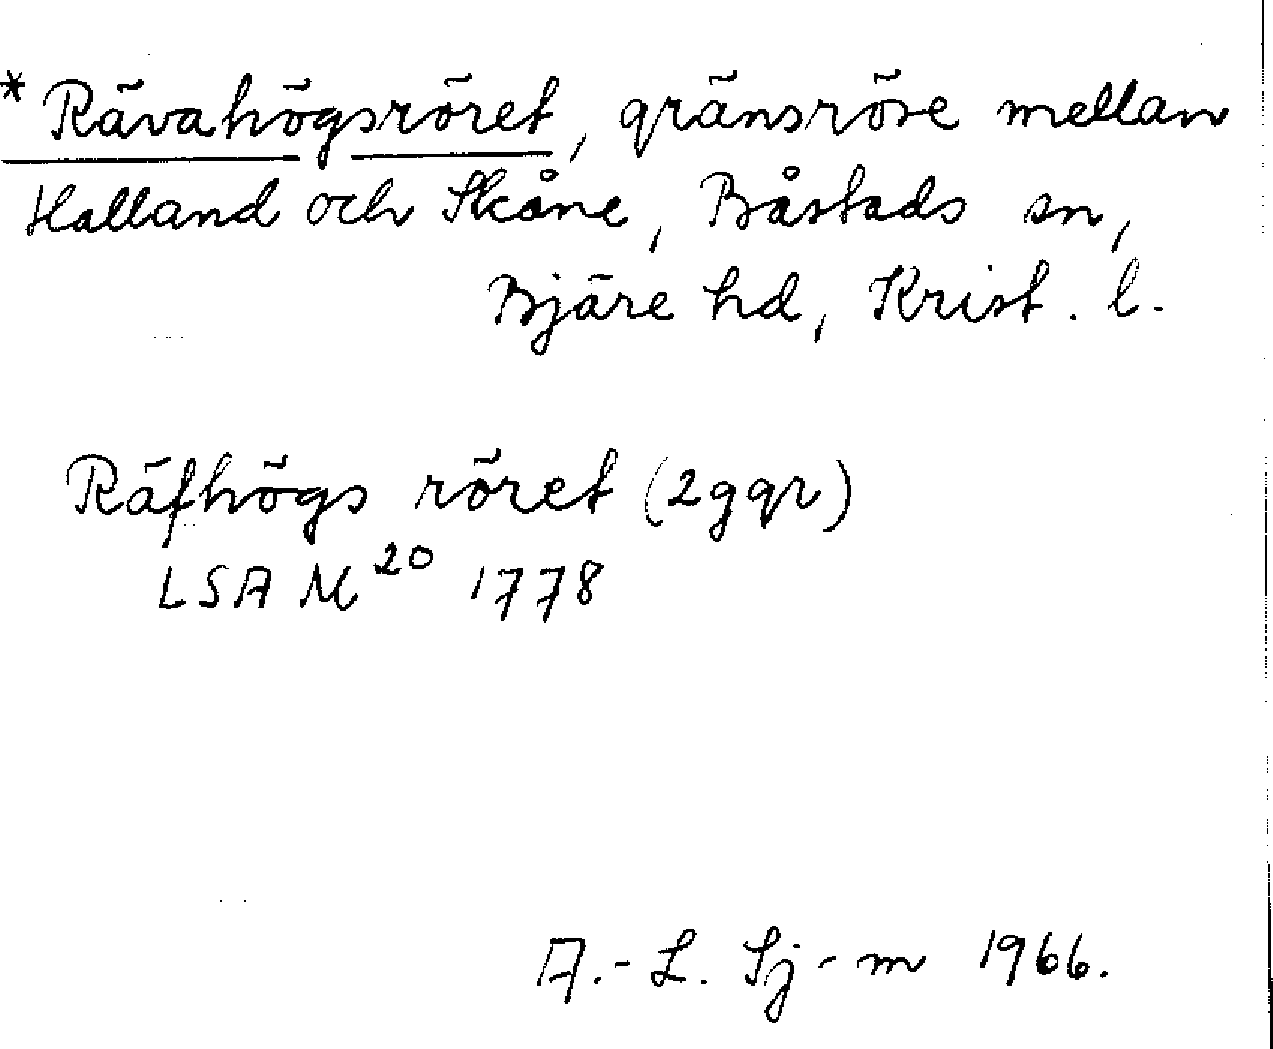 * Rävahögsröret, gränsröse mellan
Halland och Skåne, Båstads sn,
Bjäre hd, Krist. l.
Räfhögs röret (2 ggr)
LSA M²⁰ 1778
A.-L. Sj-m 1966.